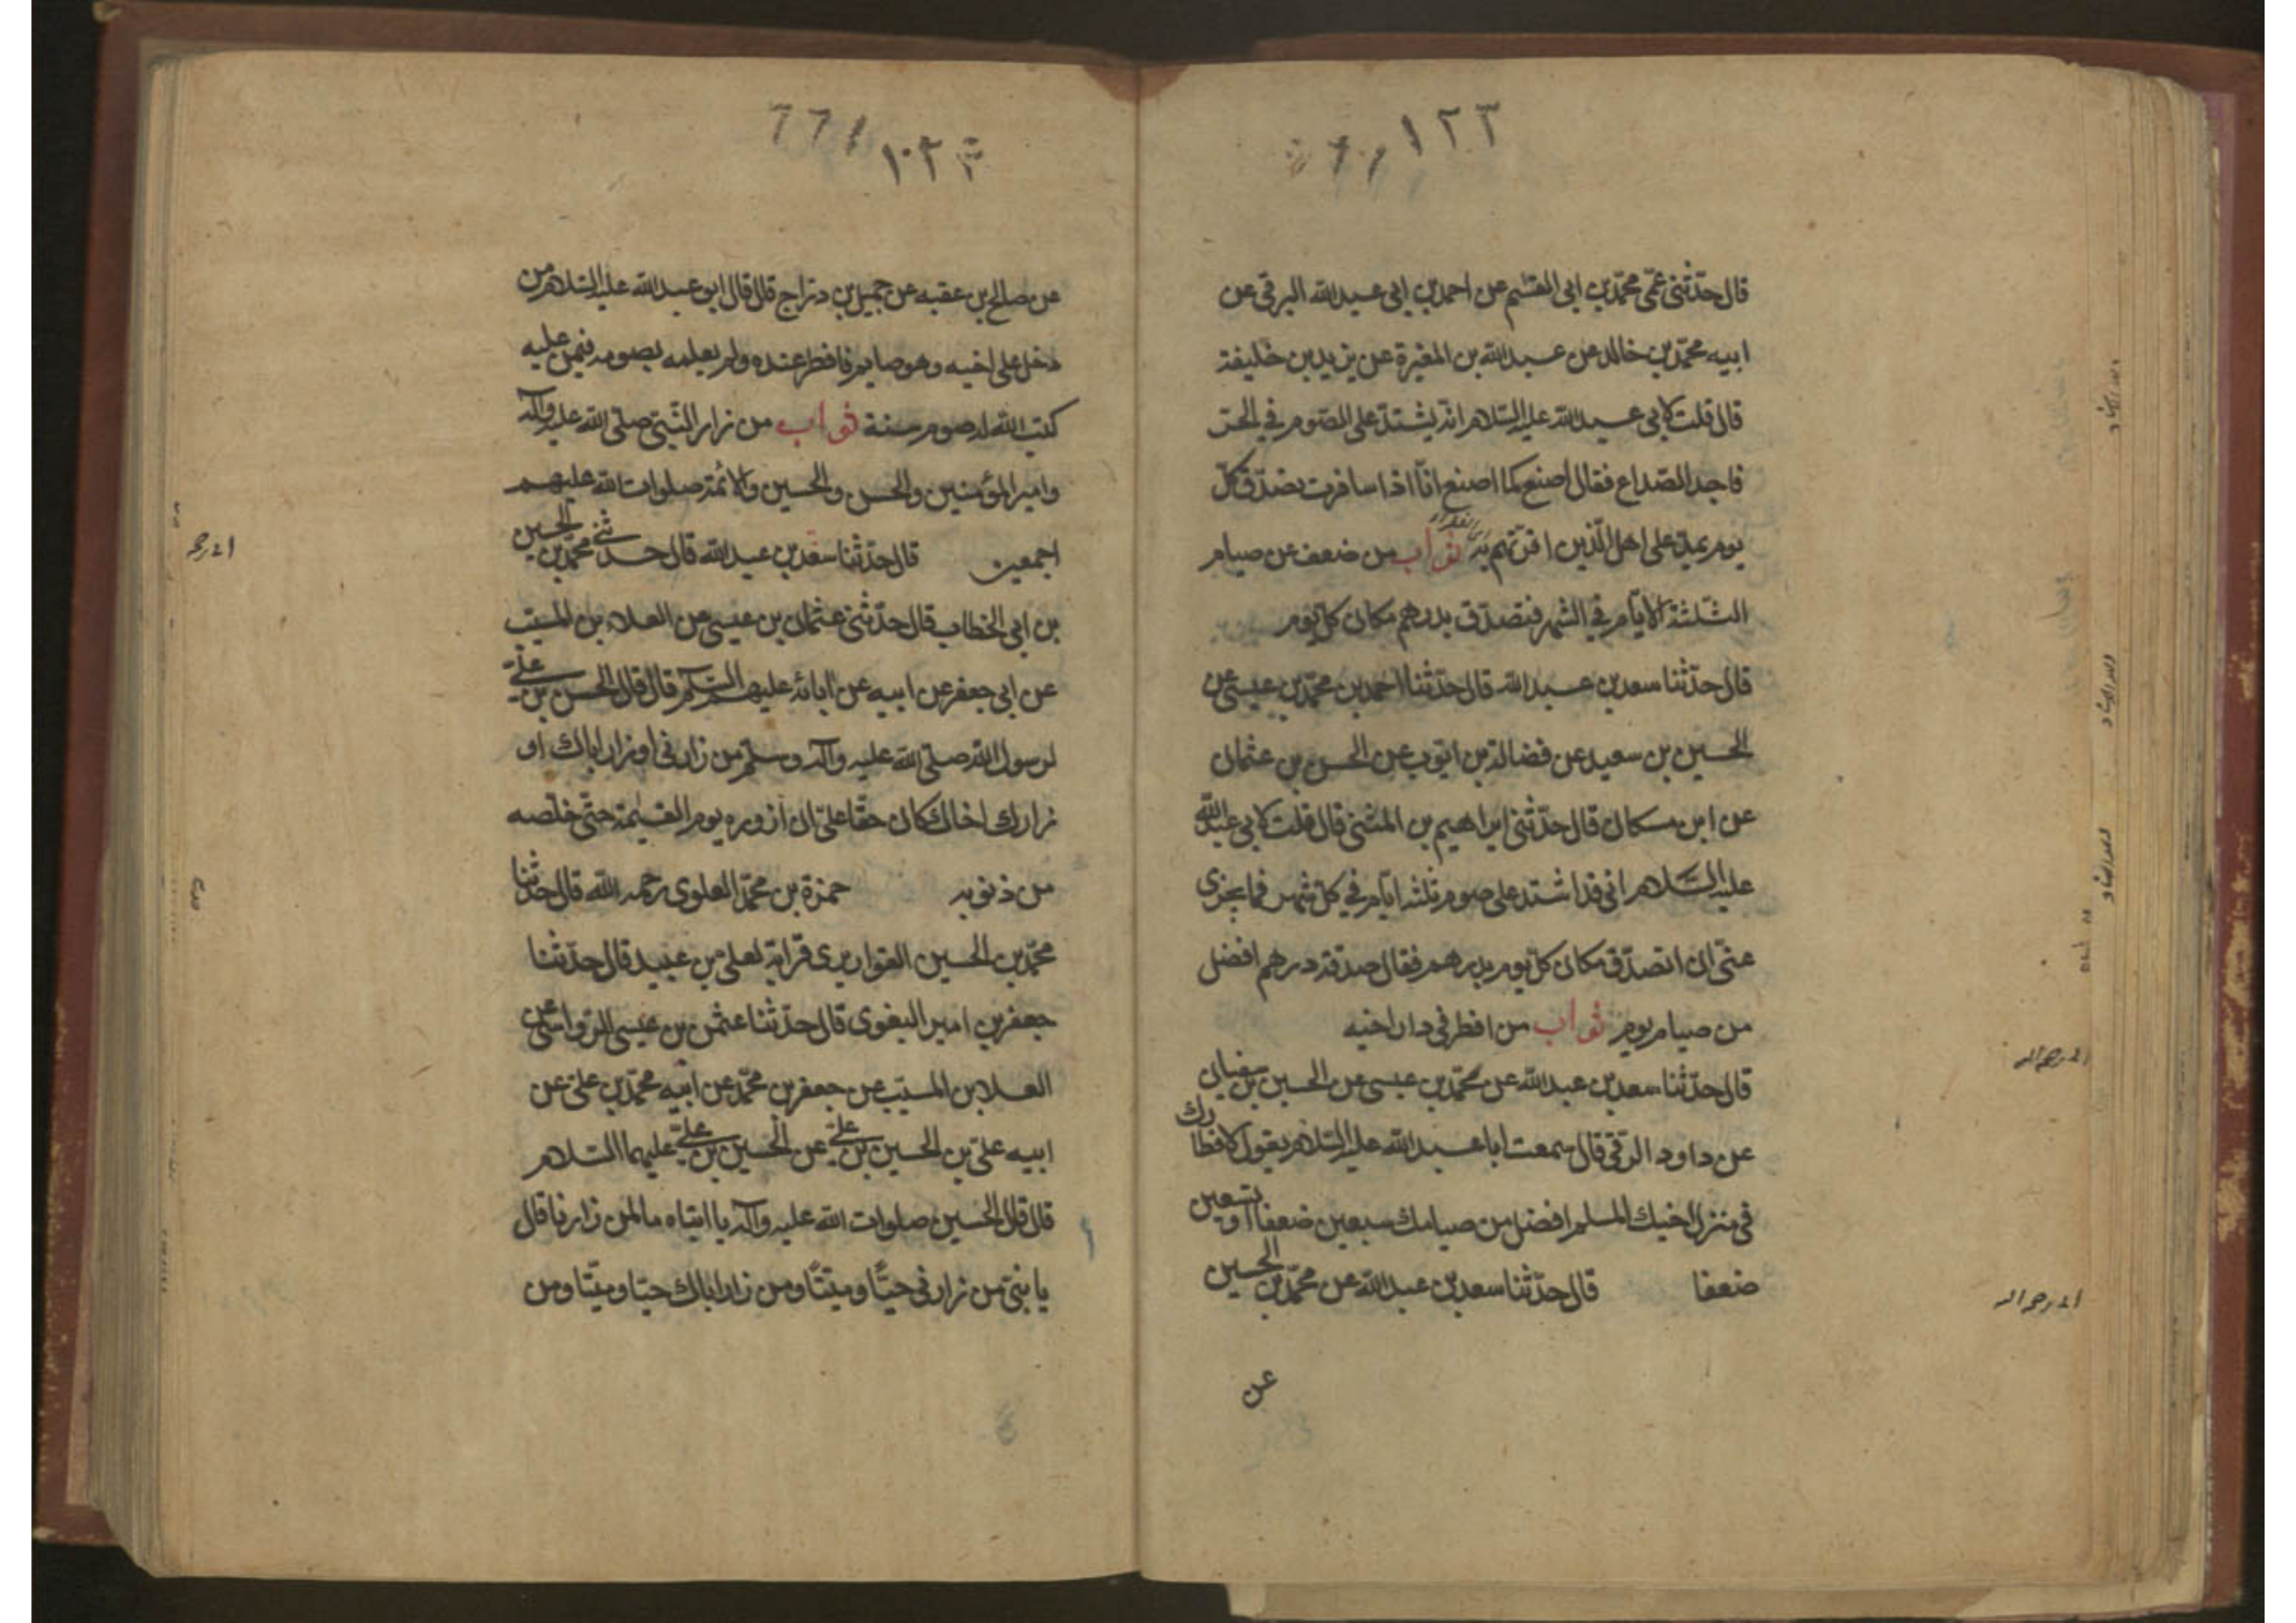 ١٢٣
قال حدّثنى عمّى محمّد بن ابى القسٰم عن احمد بن ابى عبد الله البرقى عن
ابيه محمّد بن خالد عن عبد الله بن المغيرة عن يزيد بن خليفة
قال قلت لابى عبد الله عليه السّلام انّه يشتدّ على الصّوم فى الحرّ
فاجد الصّداع فقال اصنع كما اصنع انّا اذا سافرت تصدّق كلّ
يوم بمدّ على اهل الّذين اقوتهم به ثواب من ضعف عن صيام
الثّلثة الايّام فى الشهر فتصدّق بدرهم مكان كلّ يوم
قال حدّثنا سعد بن عبد الله قال حدّثنا احمد بن محمّد بن عيسى عن
الحسين بن سعيد عن فضالة بن ايّوب عن الحسن بن عثمان
عن ابن مسكان قال حدّثنى ابراهيم بن المثنى قال قلت لابى عبد الله
عليه السّلام انى قد اشتد على صوم ثلثه ايّام فى كلّ شهر فما يجزى
عنّى ان اتصدّق مكان كلّ يوم بدرهم فقال صدقة درهم افضل
من صيام يوم ثواب من افطر فى دار اخيه
قال حدّثنا سعد بن عبد الله عن محمّد بن عيسى عن الحسين بن سفيان
عن داود الرّقى قال سمعت ابا عبد الله عليه السّلام يقول لافطارك
فى منزل اخيك المسلم افضل من صيامك سبعين ضعفا او تسعين
ضعفا قال حدّثنا سعد بن عبد الله عن محمّد بن الحسين
عن
عن صالح بن عقبه عن جميل بن درّاج قال قال ابو عبد الله عليه السّلام من
دخل على اخيه وهو صايم فافطر عنده ولم يعلمه بصومه فيمن عليه
كتب الله له صوم سنة ثواب من زار النّبىّ صلّى الله عليه وآله
وامير المؤمنين والحسن والحسين والائمّة صلوات الله عليهم
اجمعين قال حدّثنا سعد بن عبد الله قال حدثنى محمّد بن الحسين
بن ابى الخطاب قال حدّثنى عثمان بن عيسى عن العلاء بن المسيّب
عن ابى جعفر عن ابيه عن آبائه عليهم السّلم قال قال الحسن بن علىّ
لرسول الله صلّى الله عليه وآله وسلّم من زارنى او زار اباك او
زارك اخاك كان حقّا علىّ ان ازوره يوم القيٰمة حتّى خلّصه
من ذنوبه حمزة بن محمّد العلوى رحمه الله قال حدّثنا
محمّد بن الحسين القواريرى قرابة لعلى بن عبيد قال حدّثنا
جعفر بن امير البغوى قال حدّثنا عثمن بن عيسى الرّواسى عن
العلا بن المسيّب عن جعفر بن محمّد عن ابيه محمّد بن علىّ عن
ابيه علىّ بن الحسين بن علىّ عن الحسين بن علىّ عليهما السّلام
قال قال الحسين صلوات الله عليه وآله يا ابتاه ما لمن زارنا قال
يا بنىّ من زارنى حيّا وميّتا ومن زار اباك حيّا وميّتا ومن